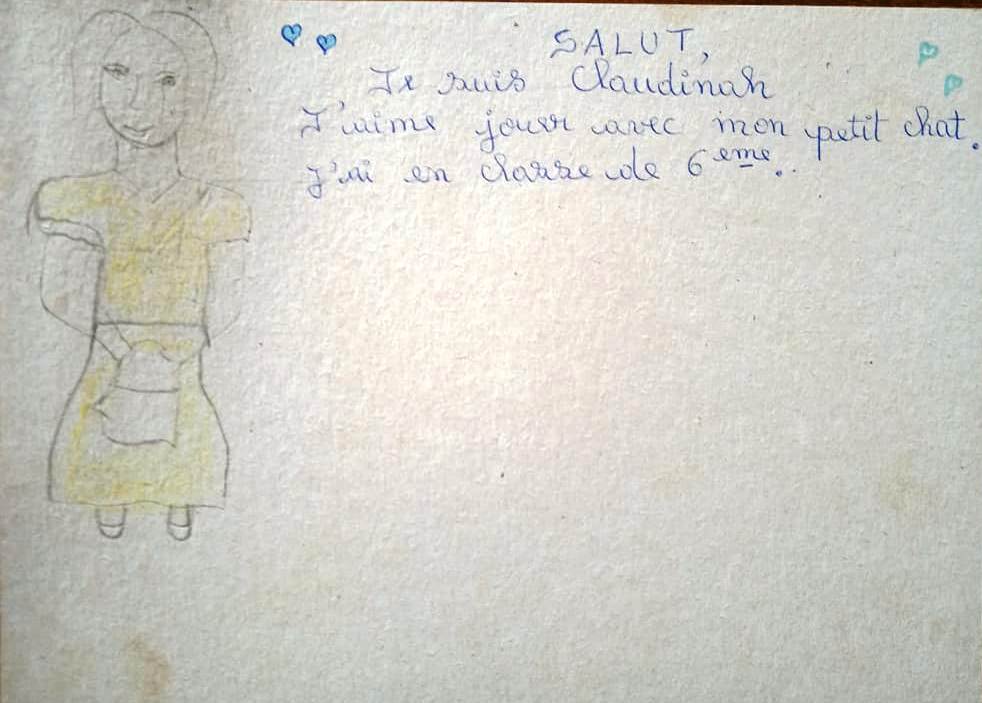 SALUT,
Je suis Claudinah
J'aime jouer avec mon petit chat.
J'ai en classe de 6eme..